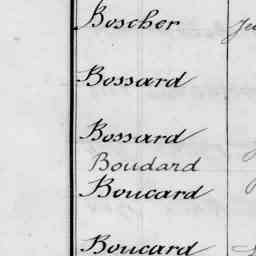 Boscher
Bossard
Bossard
Boudard
Boucard
Boucard